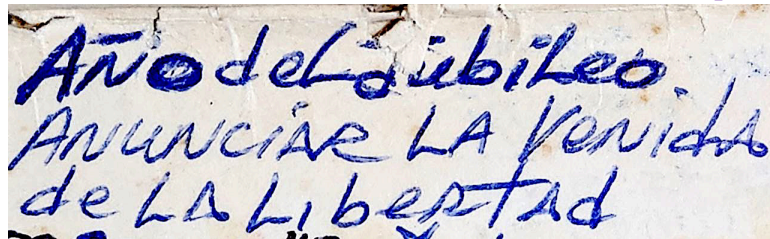 Año del Jubileo.
ANUNCIAR LA VenidA
de LA LibeRTAd